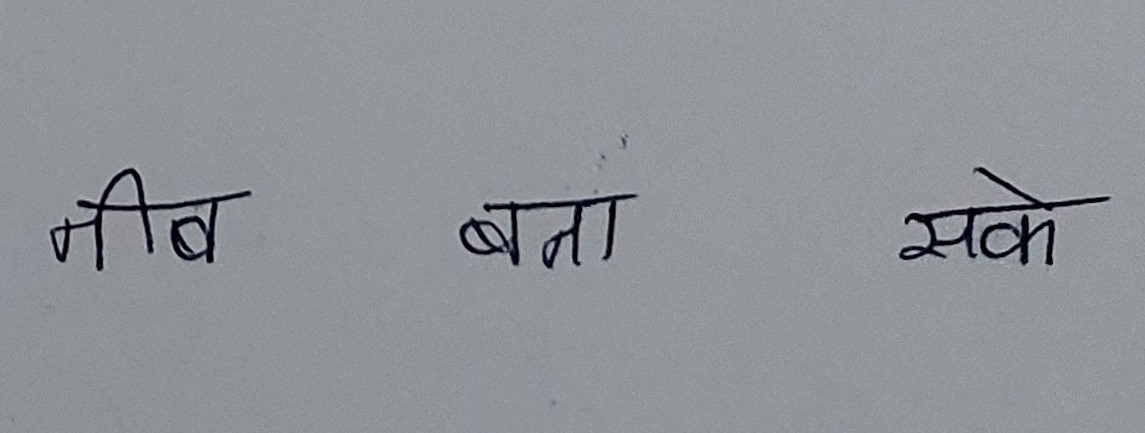 नीब बना सके